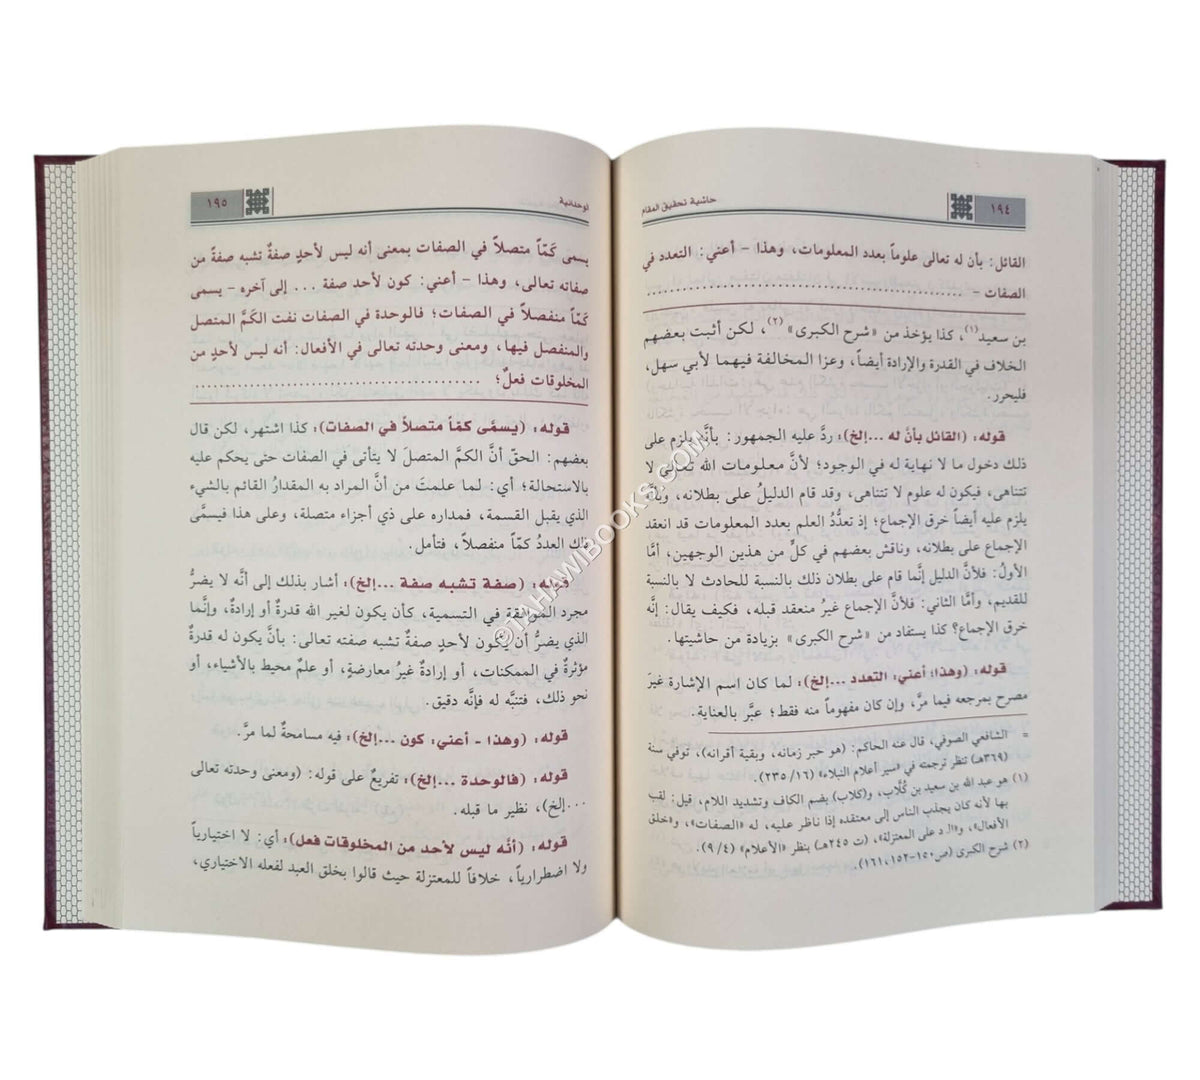 ١٩٤
حاشية تحقيق المقام
القائل: بأن له تعالى علوماً بعدد المعلومات، وهذا - أعني: التعدد في
الصفات - ...............................................
بن سعيد(١)، كذا يؤخذ من «شرح الكبرى»(٢)، لكن أثبت بعضهم
الخلاف في القدرة والإرادة أيضاً، وعزا المخالفة فيهما لأبي سهل،
فليحرر.
قوله: (القائل بأنَّ له ...إلخ): ردَّ عليه الجمهور: بأنَّه يلزم على
ذلك دخول ما لا نهاية له في الوجود؛ لأنَّ معلومات الله تعالى لا
تتناهى، فيكون له علوم لا تتناهى، وقد قام الدليلُ على بطلانه، وبأنَّه
يلزم عليه أيضاً خرق الإجماع؛ إذ تعدُّدُ العلم بعدد المعلومات قد انعقد
الإجماع على بطلانه، وناقش بعضهم في كلٍّ من هذين الوجهين، أمَّا
الأولُ: فلأنَّ الدليل إنَّما قام على بطلان ذلك بالنسبة للحادث لا بالنسبة
للقديم، وأمَّا الثاني: فلأنَّ الإجماع غيرُ منعقد قبله، فكيف يقال: إنَّه
خرق الإجماع؟ كذا يستفاد من «شرح الكبرى» بزيادة من حاشيتها.
قوله: (وهذا؛ أعني: التعدد ...إلخ): لما كان اسم الإشارة غيرَ
مصرح بمرجعه فيما مرَّ، وإن كان مفهوماً منه فقط؛ عبَّر بالعناية.
= الشافعي الصوفي، قال عنه الحاكم: (هو حبر زمانه، وبقية أقرانه)، توفي سنة
(٣٦٩هـ) تنظر ترجمته في «سير أعلام النبلاء» (١٦/ ٢٣٥).
(١) هو عبد الله بن سعيد بن كُلَّاب، و(كلاب) بضم الكاف وتشديد اللام، قيل: لقب
بها لأنه كان يجذب الناس إلى معتقده إذا ناظر عليه، له «الصفات»، و«خلق
الأفعال»، و«الرد على المعتزلة»، (ت ٢٤٥هـ) ينظر «الأعلام» (٩٠/٤).
(٢) شرح الكبرى (ص١٥٠-١٥٢، ١٦١).
لوحدانية
١٩٥
يسمى كَمّاً متصلاً في الصفات بمعنى أنه ليس لأحدٍ صفةٌ تشبه صفةً من
صفاته تعالى، وهذا - أعني: كون لأحد صفة ... إلى آخره - يسمى
كَمّاً منفصلاً في الصفات؛ فالوحدة في الصفات نفت الكَمَّ المتصل
والمنفصل فيها، ومعنى وحدته تعالى في الأفعال: أنه ليس لأحدٍ من
المخلوقات فعلٌ؛ ......................................
قوله: (يسمَّى كمّاً متصلاً في الصفات): كذا اشتهر، لكن قال
بعضهم: الحقّ أنَّ الكمَّ المتصلَ لا يتأتى في الصفات حتى يحكم عليه
بالاستحالة؛ أي: لما علمتَ من أنَّ المراد به المقدارُ القائم بالشيء
الذي يقبل القسمة، فمداره على ذي أجزاء متصلة، وعلى هذا فيسمَّى
ذلك العددُ كمّاً منفصلاً، فتأمل.
قوله: (صفة تشبه صفة ...إلخ): أشار بذلك إلى أنَّه لا يضرُّ
مجرد الموافقة في التسمية، كأن يكون لغير الله قدرةٌ أو إرادةٌ، وإنَّما
الذي يضرُّ أن يكون لأحدٍ صفةٌ تشبه صفته تعالى: بأنَّ يكون له قدرةٌ
مؤثرةٌ في الممكنات، أو إرادةٌ غيرُ معارضةٍ، أو علمٌ محيط بالأشياء، أو
نحو ذلك، فتنبَّه له فإنَّه دقيق.
قوله: (وهذا - أعني: كون ...إلخ): فيه مسامحةٌ لما مرَّ.
قوله: (فالوحدة ...إلخ): تفريعٌ على قوله: (ومعنى وحدته تعالى
...إلخ)، نظير ما قبله.
قوله: (أنَّه ليس لأحد من المخلوقات فعل): أي: لا اختيارياً
ولا اضطرارياً، خلافاً للمعتزلة حيث قالوا بخلق العبد لفعله الاختياري،
©TAHAWIBOOKS.COM